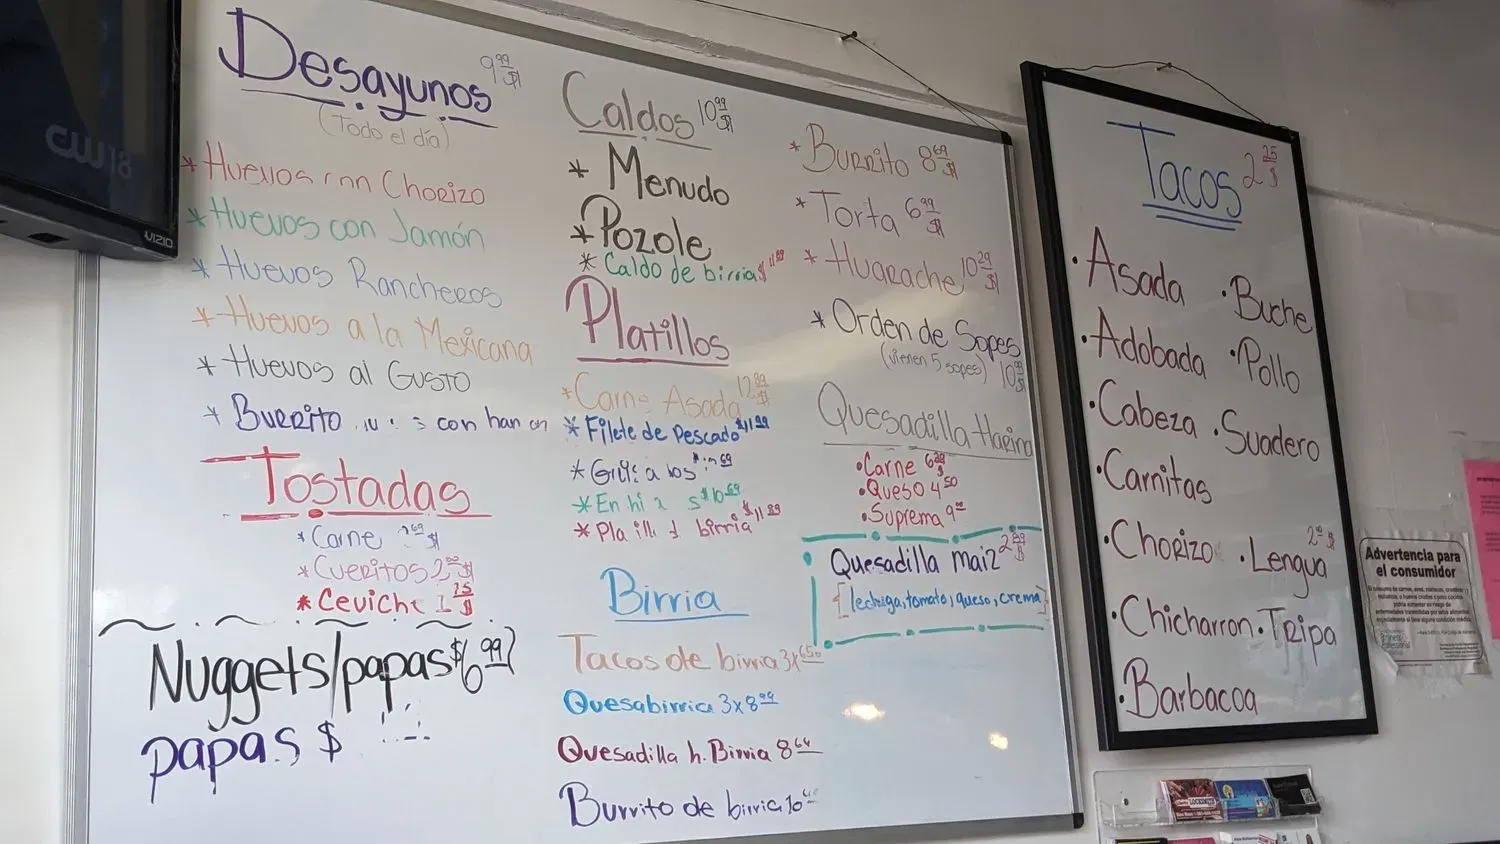 CW18
VIZIO
Desayunos 9.99 $
(Todo el día)
* Huevos con Chorizo
* Huevos con Jamón
* Huevos Rancheros
* Huevos a la Mexicana
* Huevos al Gusto
* Burrito con
Tostadas
* Carne $
* Cueritos 2 $
* Ceviche $
Nuggets/papas $6.99
papas $
Caldos 10.99 $
* Menudo
* Pozole
* Caldo de birria $
Platillos
* Carne Asada 12.89 $
* Filete de Pescado $11.99
*
* $10.69
* birria $11.89
Birria
Tacos de birria 3x6.50
Quesabirria 3x8.99
Quesadilla h. Birria 8.64
Burrito de birria 10
* Burrito 8.69 $
* Torta 6.99 $
* Huarache 10.29 $
* Orden de Sopes
(vienen 5 sopes) 10 $
Quesadilla Harina
• Carne 6 $
• Queso 4.50
• Suprema 9
Quesadilla maiz 2.89 $
[lechuga, tomato, queso, crema]
Tacos 2.25 $
• Asada
• Adobada
• Cabeza
• Carnitas
• Chorizo
• Chicharron
• Barbacoa
• Buche
• Pollo
• Suadero
• Lengua 2 $
• Tripa
Advertencia para
el consumidor
LOCKSMITH